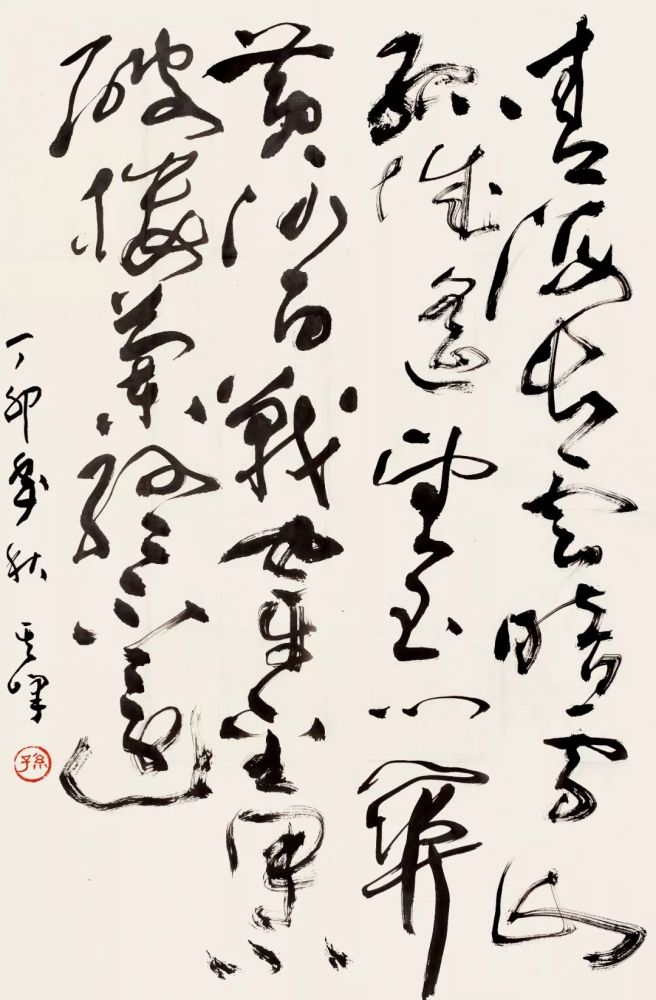 青海長雲暗雪山
孤城遙望玉門關
黃沙百戰穿金甲不
破樓蘭終不還
丁卯季秋 其峰
孫